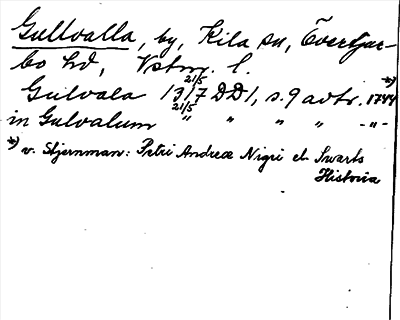 Gullvalla, by, Kila sn, Övertjur-
bo hd, Vstm. l.
Gulvala 21/5 1317 DD1, s. 9 avtr. 1744 *)
in Gulvalum 21/5 " " " " -"-
*) v. Stjernman: Petri Andreæ Nigri el. Swarts
Historia